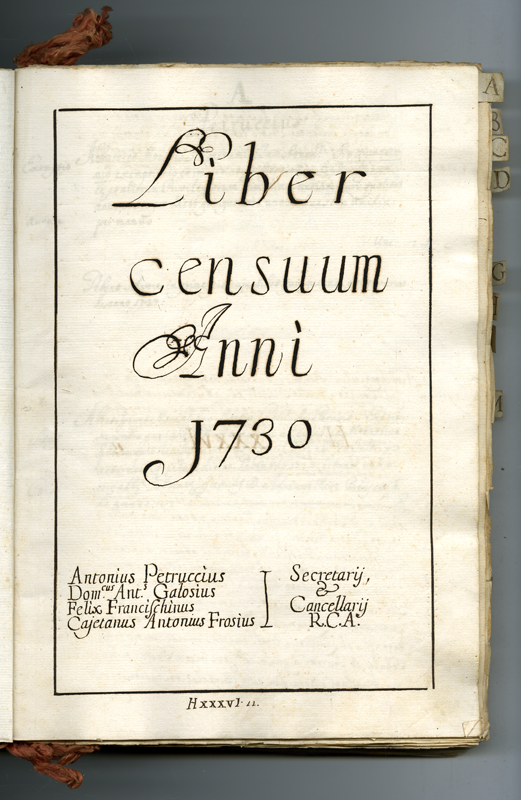 Liber
censuum
Anni
1730
Antonius Petruccius
Dom.cus Ant.s Galosius
Felix Francischinus
Cajetanus Antonius Frosius
Secretarij,
&
Cancellarij
R.C.A.
HXXXVI. 11.
A
B
C
D
G
M